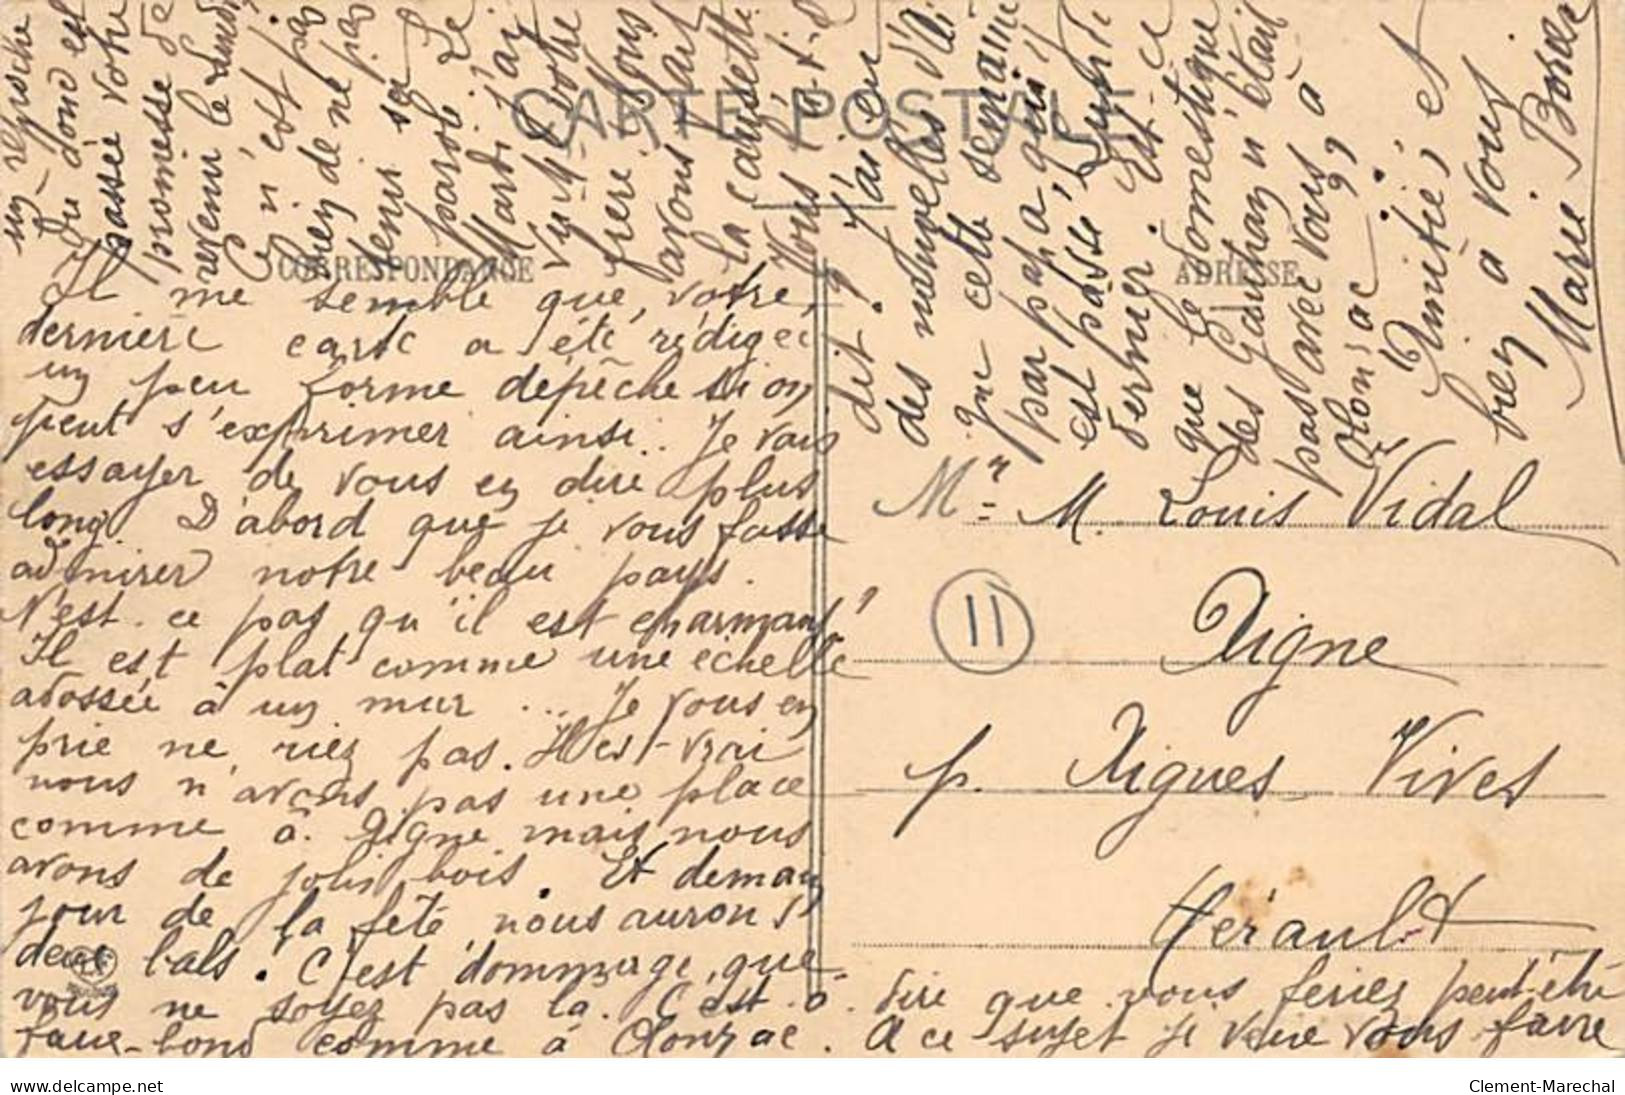 CARTE POSTALE
CORRESPONDANCE
ADRESSE
Il me semble que, votre,
dernière carte a été rédigée
un peu forme dépêche si on
peut s'exprimer ainsi.. Je vais
essayer de vous en dire plus
long. D'abord que je vous fasse
admirer notre beau pays.
N'est-ce pas qu'il est charmant?
Il est plat comme une échelle
adossée à un mur ... Je vous en
prie ne riez pas. Il est vrai
nous n'avons pas une place
comme à Aigne mais nous
avons de jolis bois. Et demain
jour de la fête nous aurons
deux bals. C'est dommage que
vous ne soyez pas là. C'est-à-dire que vous feriez peut-être
faux-bond comme à Olonzac. A ce sujet je veux vous faire
un reproche
Où donc est
passée votre
promesse de
revenir le Lundi
Ce n'est pas
bien de ne pas
tenir sa
parole. Le
Mardi j'ai
vu M votre
frère. Nous
avons fait
la causette
Vous l'a-t-il
dit? J'ai eu
des nouvelles d'Ai
gne cette semaine
par papa qui y
est passé Lundi
dernier. Est-ce
que le domestique
des Gauthan n'était
pas avec vous à
Olonzac ??
Amitiés et
bien à vous
Marie Bories
Mr M. Louis Vidal
11
Aigne
p. Aigues Vives
Hérault
www.delcampe.net
Clement-Marechal